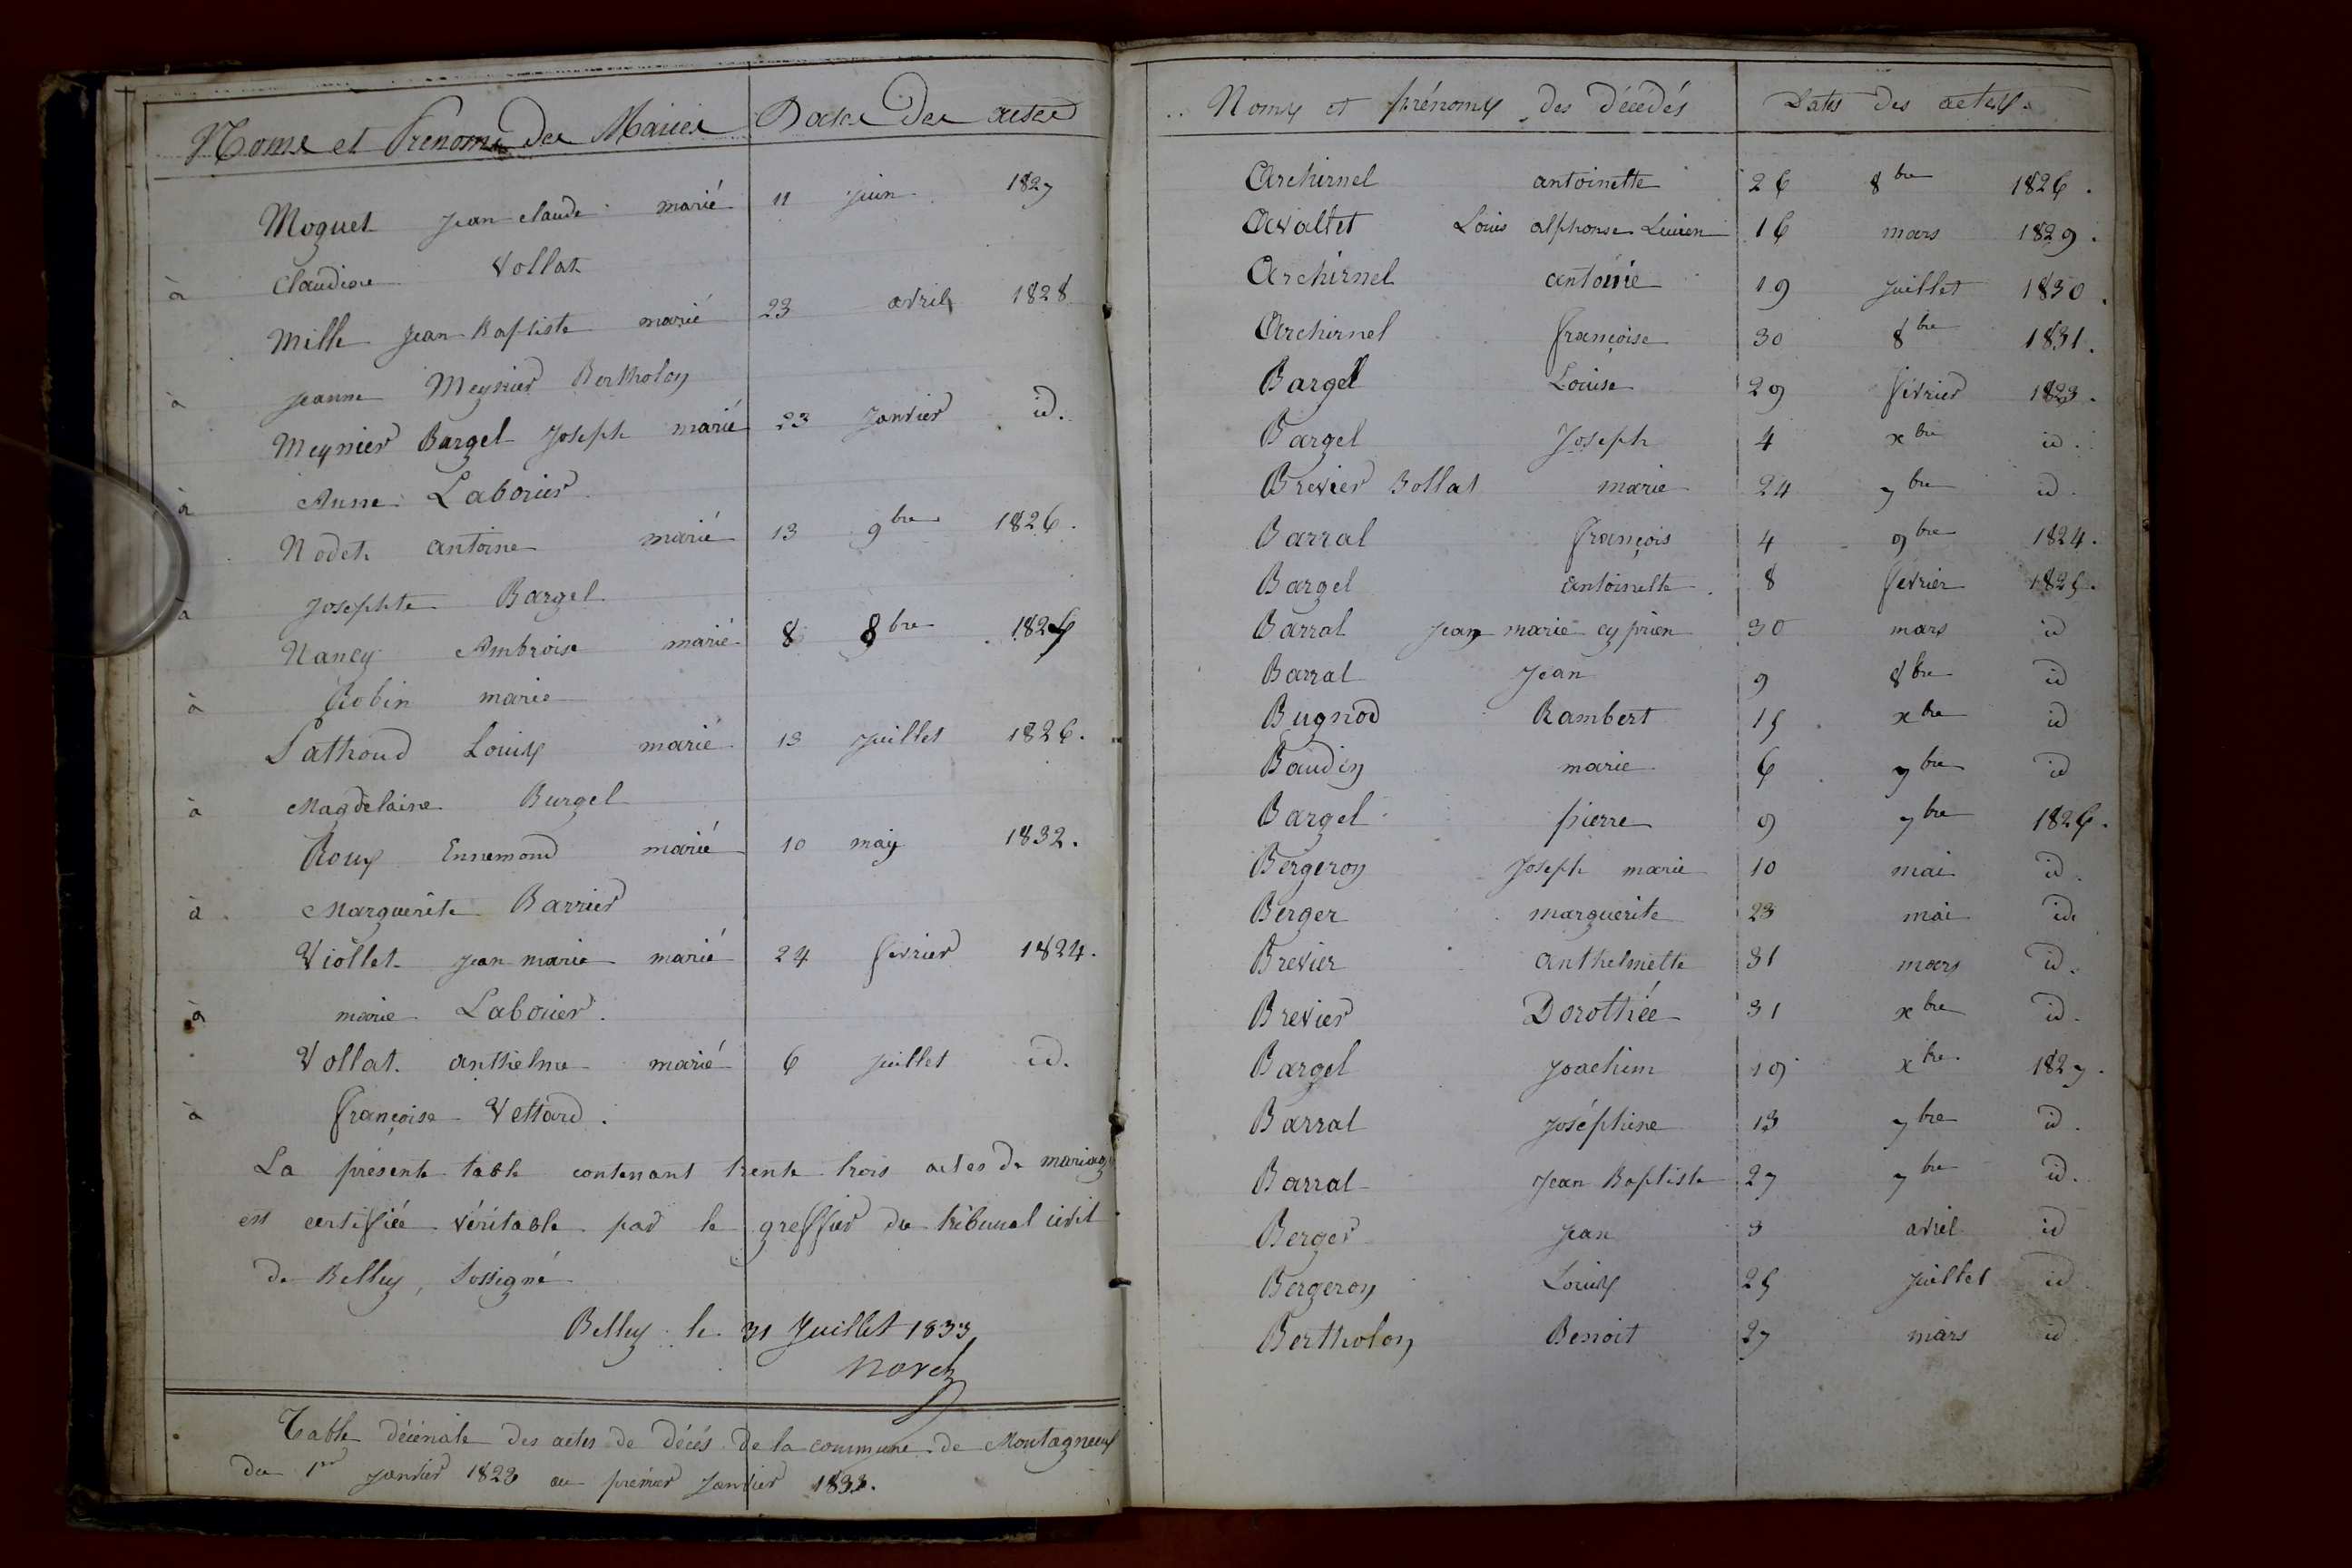 Noms et Prénoms des Mariés Dates des actes
Moguet Jean Claude marié 11 juin 1827
à Claudine Vollat
Mille Jean Baptiste marié 23 avril 1828
à Jeanne Meynier Bertholon
Meynier Bargel Joseph marié 23 Janvier id.
à Anne Laborier
Nodet antoine marié 13 9bre 1826.
à Josephte Bargel
Nancy Ambroise marié 8 8bre
à Robin marie
Pathoud Louis marié 13 Juillet 1826.
à Magdelaine Burgel
Roux Ennemond marié 10 may 1832.
à Marguerite Barrier
Viollet Jean marie marié 24 fevrier 1824.
à marie Laborier.
Vollat anthelme marié 6 juillet id.
à françoise Vettard.
La présente table contenant trente trois actes de mariage
est certifiée véritable par le greffier du tribunal civil
de Belley, Sossigné
Belley le 31 Juillet 1833
Table décénale des actes de décés de la commune de Montagneux
du 1er janvier 1823 au premier Janvier 1833.
Noms et prénoms des décédés Dates des actes.
Archirnel antoinette 26 8bre 1826.
Avaltet Louis alphonse Lucien 16 mars 1829.
Archirnel antoine 19 Juillet 1830.
Archirnel françoise 30 8bre 1831.
Bargel Louise 29 février 1823.
Bargel Joseph 4 xbre id.
Brevier Bollat marie 24 7bre id.
Barral françois 4 9bre 1824.
Bargel antoinette 8 fevrier 1825.
Barral Jean marie cyprien 30 mars id
Barral Jean 9 8bre id
Bugnod Rambert 15 xbre id
Baudin marie 6 7bre id
Bargel pierre 9 7bre 1826.
Bergeron Joseph marie 10 mai id.
Berger marguerite 23 mai id.
Brevier anthelmette 31 mars id.
Brevier Dorothée 31 xbre id.
Bargel Joachim 19 xbre 1827.
Barral Joséphine 13 7bre id.
Barral Jean Baptiste 27 7bre id.
Berger Jean 3 avril id
Bergeron Louis 25 juillet id
Bertholon Benoit 27 mars id